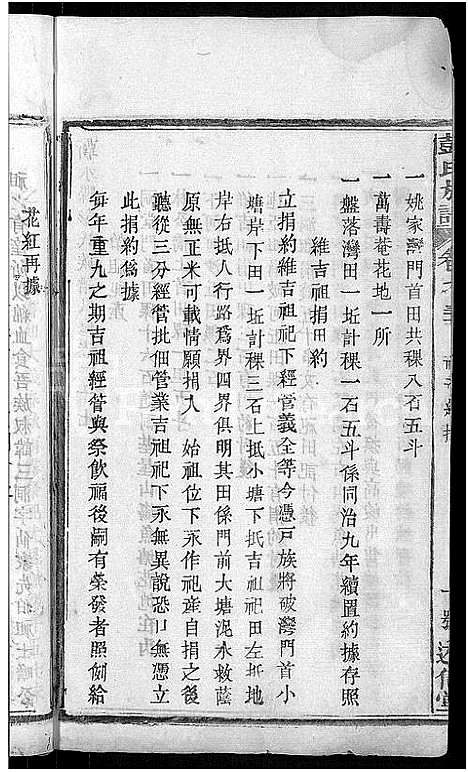 一姚家灣門首田共稞八石五斗
一萬壽菴花地一所
一盤落灣田一坵計稞一石五斗係同治九年續置約據存照
維吉祖捐田約
立捐約維吉祖祀下經管義全等今憑戶族將破灣門首小
塘岸下田一坵計稞三石上抵小塘下抵吉祖祀田左抵地
岸右抵人行路爲界四界俱明其田係門前大塘泥水救蔭
原無正米可載情願捐入 始祖位下永作祀產自捐之後
聽從三分經管批佃管業吉祖祀下永無異說恐口無憑立
此捐約爲據
每年重九之期吉祖經管與祭飲福後嗣有榮發者照例給
花紅再據